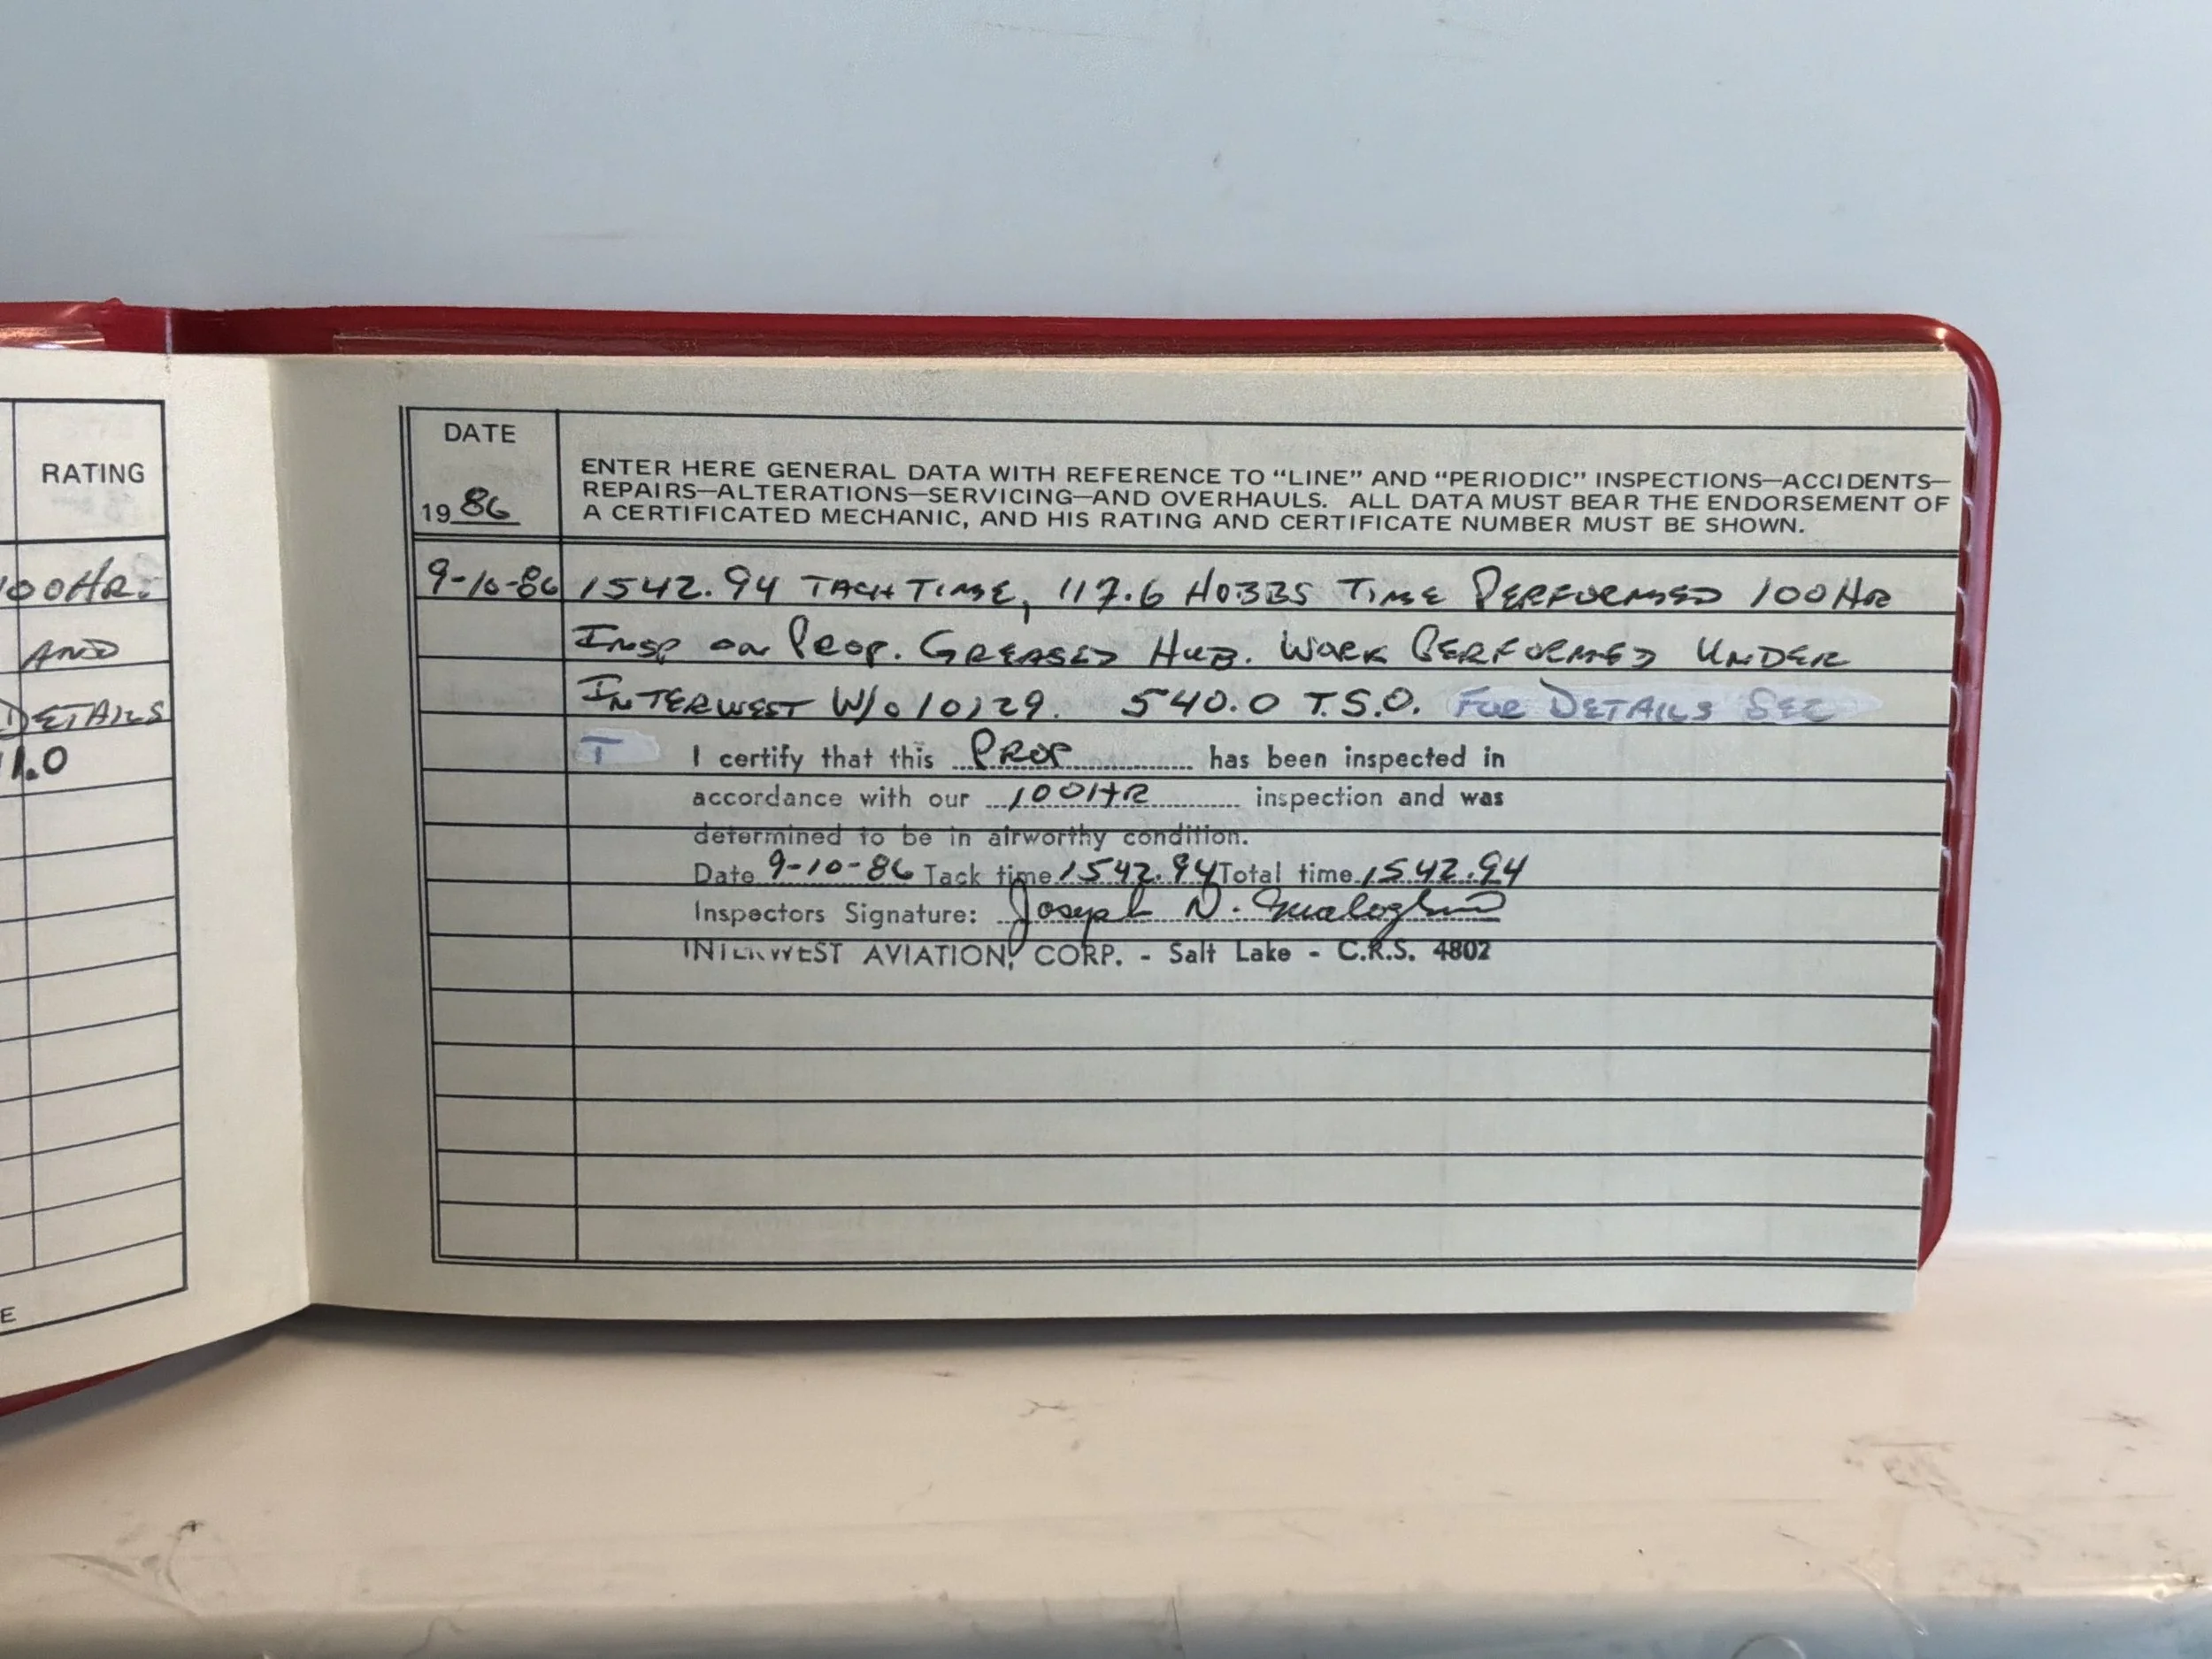 RATING
00HR.
AND
DETAILS
1.0
E
DATE
1986
ENTER HERE GENERAL DATA WITH REFERENCE TO “LINE” AND “PERIODIC” INSPECTIONS—ACCIDENTS—
REPAIRS—ALTERATIONS—SERVICING—AND OVERHAULS. ALL DATA MUST BEAR THE ENDORSEMENT OF
A CERTIFICATED MECHANIC, AND HIS RATING AND CERTIFICATE NUMBER MUST BE SHOWN.
9-10-86 1542.94 TACH TIME, 117.6 HOBBS TIME PERFORMED 100HR
INSP ON PROP. GREASED HUB. WORK PERFORMED UNDER
INTERWEST W/O 10129. 540.0 T.S.O. FOR DETAILS SEE
T I certify that this PROP has been inspected in
accordance with our 100HR inspection and was
determined to be in airworthy condition.
Date 9-10-86 Tack time 1542.94 Total time 1542.94
Inspectors Signature: Joseph N.
INTERWEST AVIATION, CORP. - Salt Lake - C.R.S. 4802